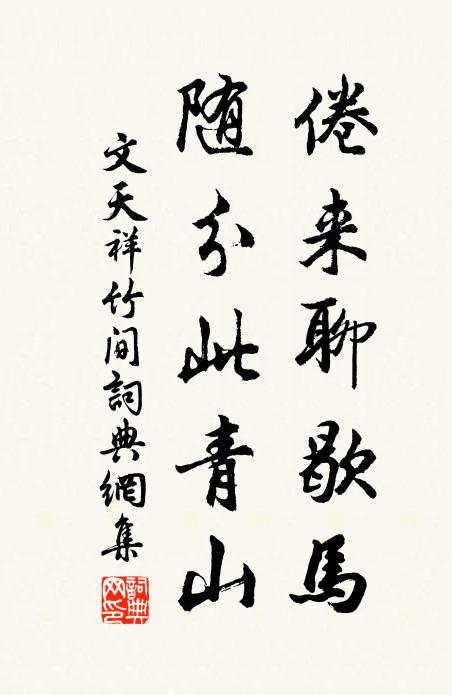 倦来聊歇馬
随分此青山
文天祥竹间詞典網集
詞典網印